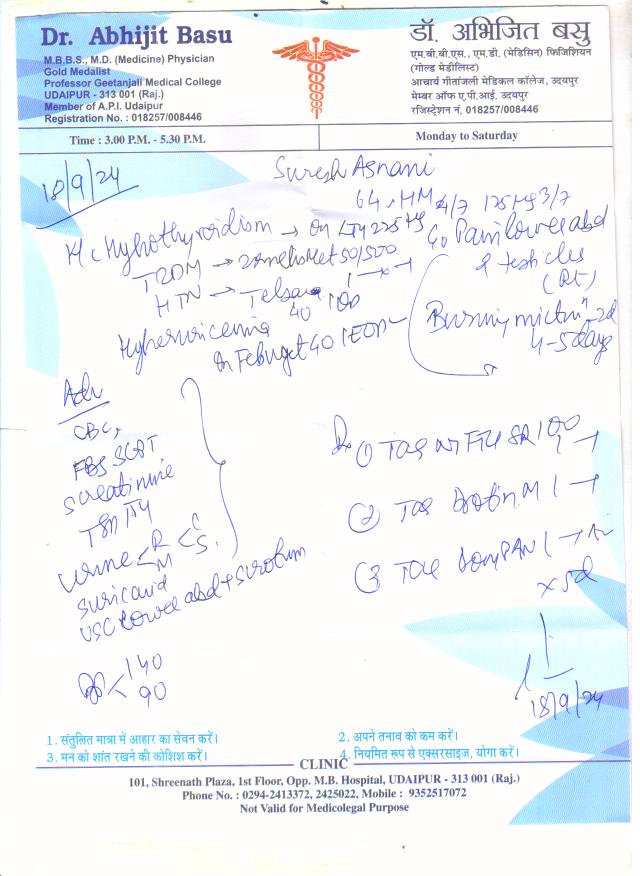 Dr. Abhijit Basu
M.B.B.S., M.D. (Medicine) Physician
Gold Medalist
Professor Geetanjali Medical College
UDAIPUR - 313 001 (Raj.)
Member of A.P.I. Udaipur
Registration No. : 018257/008446
डॉ. अभिजित बसु
एम.बी.बी.एस., एम.डी. (मेडिसिन) फिजिशियन
(गोल्ड मेडीलिस्ट)
आचार्य गीतांजली मेडिकल कॉलेज, उदयपुर
मेम्बर ऑफ ए.पी.आई. उदयपुर
रजिस्ट्रेशन नं. 018257/008446
Time : 3.00 P.M. - 5.30 P.M.
Monday to Saturday
18/9/24
Suresh Asnani
64
4/7 125 Mg 3/7
Hypothyroidism → On
T2DM → 50/500
HTN → 40
Hyperuricemia
On Febuget 40
Pain lower abd
& testicles
(Rt)
Burning
4-5 days
Adv
CBC,
FBS SGOT
S creatinine
TSH
Urine < R < C
M S.
S uric acid
lower abd + scrotum
140
90
Rx ① Tab 100
② Tab M 1 →
③ Tab 1 →
x 5d
18/9/24
1. संतुलित मात्रा में आहार का सेवन करें।
2. अपने तनाव को कम करें।
3. मन को शांत रखने की कोशिश करें।
4. नियमित रूप से एक्सरसाइज, योगा करें।
CLINIC
101, Shreenath Plaza, 1st Floor, Opp. M.B. Hospital, UDAIPUR - 313 001 (Raj.)
Phone No. : 0294-2413372, 2425022, Mobile : 9352517072
Not Valid for Medicolegal Purpose